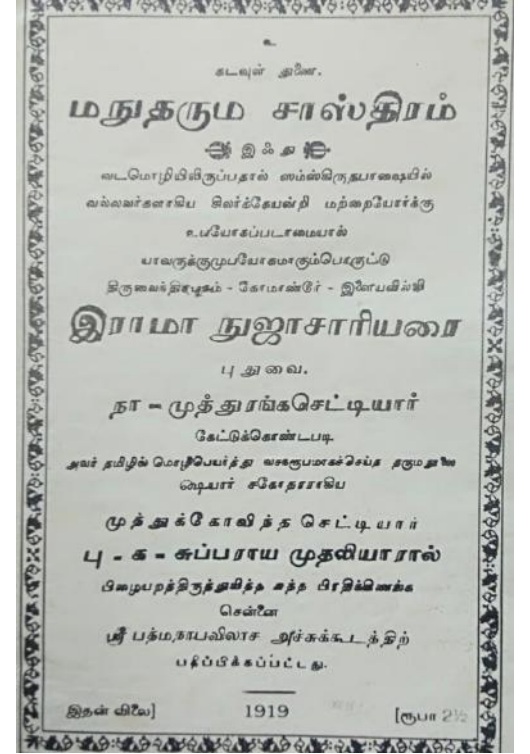 உ
கடவுள் துணை.
மநுதரும சாஸ்திரம்
இஃது
வடமொழியிலிருப்பதால் ஸம்ஸ்கிருதபாஷையில்
வல்லவர்களாகிய சிலர்க்கேயன்றி மற்றையோர்க்கு
உபயோகப்படாமையால்
யாவருக்குமுபயோகமாகும்பொருட்டு
திருவைந்திரபுரம் - கோமாண்டூர் - இளையவில்லி
இராமா நுஜாசாரியரை
புதுவை.
நா - முத்துரங்கசெட்டியார்
கேட்டுக்கொண்டபடி
அவர் தமிழில் மொழிபெயர்த்து வசனரூபமாகச்செய்த தரும
ஷையார் சகோதரராகிய
முத்துக்கோவிந்த செட்டியார்
பு - க - சுப்பராய முதலியாரால்
பிழையறத்திருத்துவித்த பிரதிக்கிணங்க
சென்னை
ஸ்ரீ பத்மநாபவிலாச அச்சுக்கூடத்திற்
பதிப்பிக்கப்பட்டது.
இதன் விலை] 1919 [ரூபா 2½